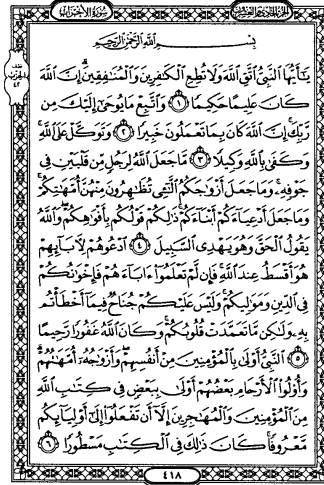 الجزء الحادي والعشرون
سورة الأحزاب
بِسْمِ اللَّهِ الرَّحْمَٰنِ الرَّحِيمِ
يَٰٓأَيُّهَا النَّبِيُّ اتَّقِ اللَّهَ وَلَا تُطِعِ الْكَٰفِرِينَ وَالْمُنَٰفِقِينَ إِنَّ اللَّهَ
كَانَ عَلِيمًا حَكِيمًا ١ وَاتَّبِعْ مَا يُوحَىٰ إِلَيْكَ مِن
رَّبِّكَ إِنَّ اللَّهَ كَانَ بِمَا تَعْمَلُونَ خَبِيرًا ٢ وَتَوَكَّلْ عَلَى اللَّهِ
وَكَفَىٰ بِاللَّهِ وَكِيلًا ٣ مَّا جَعَلَ اللَّهُ لِرَجُلٍ مِّن قَلْبَيْنِ فِي
جَوْفِهِ وَمَا جَعَلَ أَزْوَٰجَكُمُ الَّٰٓـِٔي تُظَٰهِرُونَ مِنْهُنَّ أُمَّهَٰتِكُمْ
وَمَا جَعَلَ أَدْعِيَآءَكُمْ أَبْنَآءَكُمْ ذَٰلِكُمْ قَوْلُكُم بِأَفْوَٰهِكُمْ وَاللَّهُ
يَقُولُ الْحَقَّ وَهُوَ يَهْدِي السَّبِيلَ ٤ ادْعُوهُمْ لِأٓبَآئِهِمْ
هُوَ أَقْسَطُ عِندَ اللَّهِ فَإِن لَّمْ تَعْلَمُوٓا ءَابَآءَهُمْ فَإِخْوَٰنُكُمْ
فِي الدِّينِ وَمَوَٰلِيكُمْ وَلَيْسَ عَلَيْكُمْ جُنَاحٌ فِيمَآ أَخْطَأْتُم
بِهِ وَلَٰكِن مَّا تَعَمَّدَتْ قُلُوبُكُمْ وَكَانَ اللَّهُ غَفُورًا رَّحِيمًا
٥ النَّبِيُّ أَوْلَىٰ بِالْمُؤْمِنِينَ مِنْ أَنفُسِهِمْ وَأَزْوَٰجُهُٓ أُمَّهَٰتُهُمْ
وَأُو۟لُوا الْأَرْحَامِ بَعْضُهُمْ أَوْلَىٰ بِبَعْضٍ فِي كِتَٰبِ اللَّهِ
مِنَ الْمُؤْمِنِينَ وَالْمُهَٰجِرِينَ إِلَّآ أَن تَفْعَلُوٓا إِلَىٰٓ أَوْلِيَآئِكُم
مَّعْرُوفًا كَانَ ذَٰلِكَ فِي الْكِتَٰبِ مَسْطُورًا ٦
٤١٨